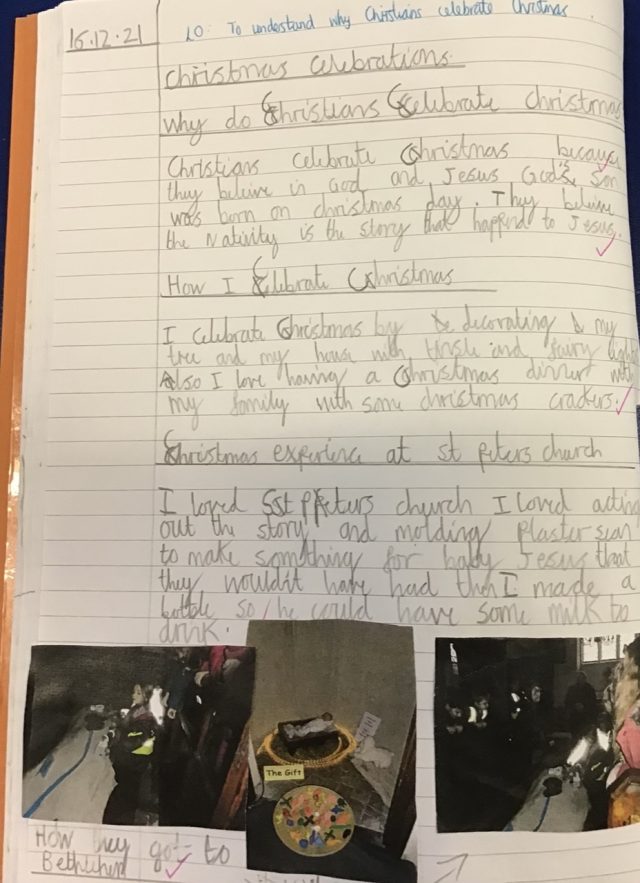 16.12.21
LO: To understand why Christians celebrate Christmas.
Christmas Celebrations.
Why do Christians Celebrate christmas
Christians celebrate Christmas because
they beleive in God and Jesus God's son
was born on christmas day. They beleive
the Nativity is the story that happend to Jesus.
How I Celebrate Christmas
I celebrate Christmas by decorating my
tree and my house with tinsle and fairy lights
Also I love having a Christmas dinner with
my family with some christmas crackers.
Christmas experience at st peters church
I loved st Peters church I loved acting
out the story and molding plaster
to make something for baby Jesus that
they wouldn't have had then I made a
bottle so he could have some milk to
drink.
The Gift
How they got to